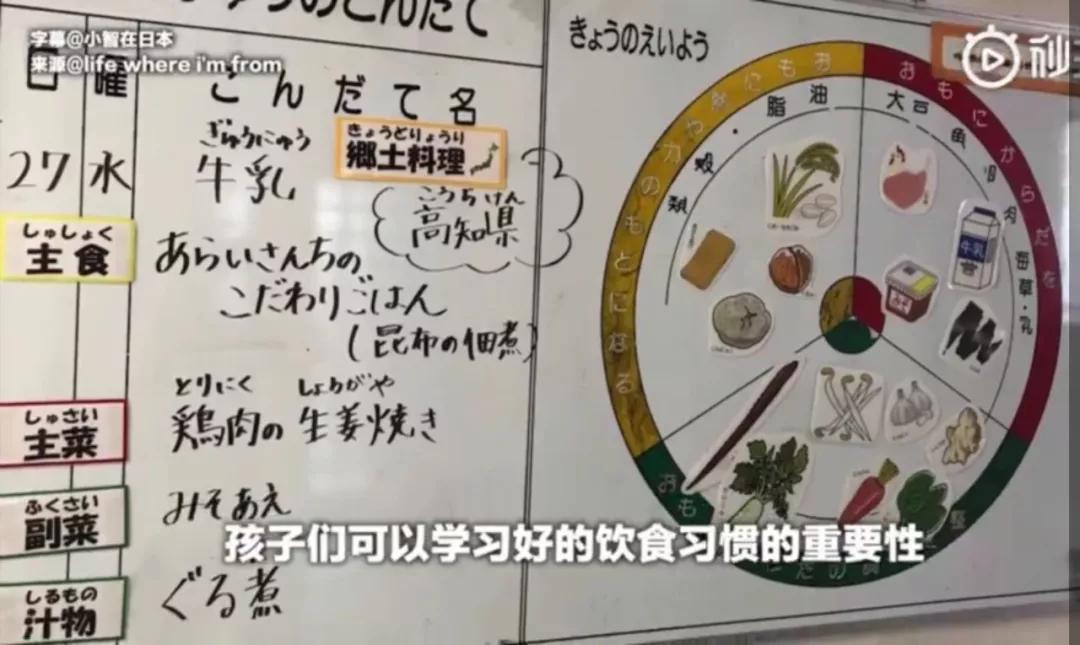 字幕@小智在日本
来源@life where i'm from
のこんだて
日 曜 こんだて名
27 水
ぎゅうにゅう
牛乳
きょうどりょうり
郷土料理
こうちけん
高知県
しゅしょく
主食
あらいさんちの
こだわりごはん
(昆布の佃煮)
しゅさい
主菜
とりにく しょうがや
鶏肉の 生姜焼き
ふくさい
副菜
みそあえ
しるもの
汁物
ぐる煮
きょうのえいよう
おもにからだを
おもにねつや力のもとになる
穀類
油脂
大豆
魚
肉
海草・乳
牛乳
みそ
おも
秒
孩子们可以学习好的饮食习惯的重要性